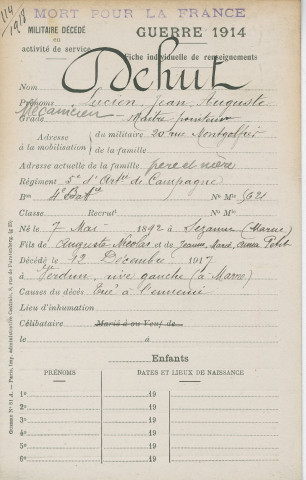 114
1918
MORT POUR LA FRANCE
MILITAIRE DÉCÉDÉ
en
activité de service
GUERRE 1914
Fiche individuelle de renseignements
Nom Dehut
Prénoms Lucien, Jean, Auguste
Mécanicien
Grade Maître pointeur
Adresse à la mobilisation
du militaire 20 rue Montgolfier
de la famille
Adresse actuelle de la famille père et mère
Régiment 5e d'Artie de Campagne
Bon 4e Batie No Mle 5621
Classe Recrut No Mle
Né le 7 Mai 1892 à Sézanne (Marne)
Fils de Auguste Nicolas et de Jeanne, Marie,
Décédé le 13 Décembre 1917
à Verdun, rive gauche (à Marre)
Causes du décès Tué à l'ennemi
Lieu d'inhumation
Célibataire Marié à ou Veuf de
le à
Enfants
PRÉNOMS DATES ET LIEUX DE NAISSANCE
1o 19 à
2o 19 à
3o 19 à
4o 19 à
5o 19 à
6o 19 à